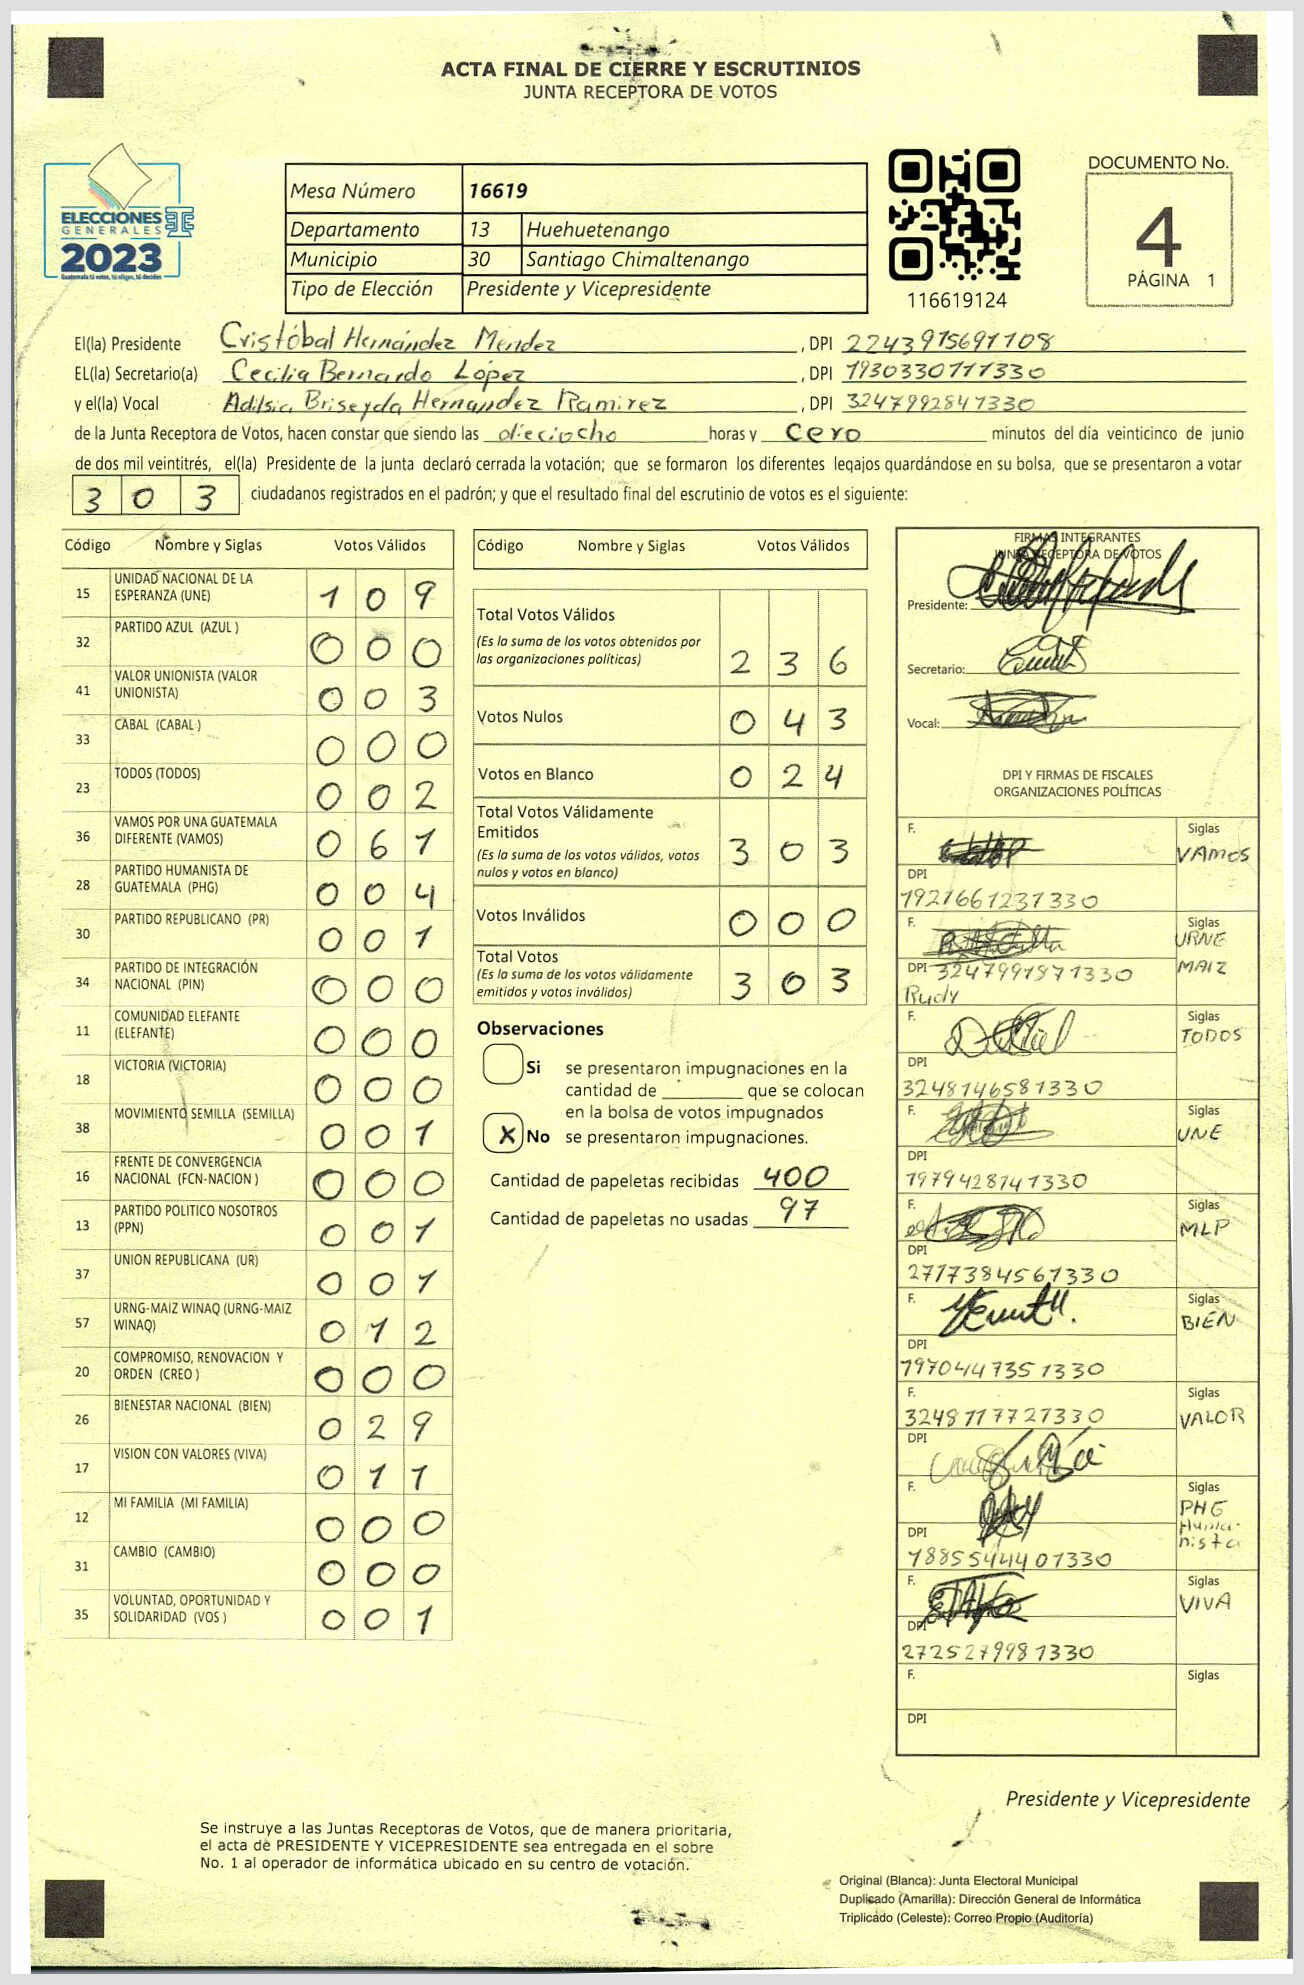 ACTA FINAL DE CIERRE Y ESCRUTINIOS
JUNTA RECEPTORA DE VOTOS
ELECCIONES
GENERALES
2023
Guatemala tú votes, tú eliges, tú decides
Mesa Número 16619
Departamento 13 Huehuetenango
Municipio 30 Santiago Chimaltenango
Tipo de Elección Presidente y Vicepresidente
116619124
DOCUMENTO No.
4
PÁGINA 1
El(la) Presidente Cristóbal Hernández Mendez, DPI 2243975691108
EL(la) Secretario(a) Cecilia Bernardo López, DPI 1930330111330
y el(la) Vocal Adilsia Briseyda Hernandez Ramirez, DPI 3247992841330
de la Junta Receptora de Votos, hacen constar que siendo las dieciocho horas y cero minutos del día veinticinco de junio
de dos mil veintitrés, el(la) Presidente de la junta declaró cerrada la votación; que se formaron los diferentes legajos guardándose en su bolsa, que se presentaron a votar
303 ciudadanos registrados en el padrón; y que el resultado final del escrutinio de votos es el siguiente:
Código Nombre y Siglas Votos Válidos
15 UNIDAD NACIONAL DE LA ESPERANZA (UNE) 109
32 PARTIDO AZUL (AZUL ) 000
41 VALOR UNIONISTA (VALOR UNIONISTA) 003
33 CABAL (CABAL ) 000
23 TODOS (TODOS) 002
36 VAMOS POR UNA GUATEMALA DIFERENTE (VAMOS) 061
28 PARTIDO HUMANISTA DE GUATEMALA (PHG) 004
30 PARTIDO REPUBLICANO (PR) 001
34 PARTIDO DE INTEGRACIÓN NACIONAL (PIN) 000
11 COMUNIDAD ELEFANTE (ELEFANTE) 000
18 VICTORIA (VICTORIA) 000
38 MOVIMIENTO SEMILLA (SEMILLA) 001
16 FRENTE DE CONVERGENCIA NACIONAL (FCN-NACION ) 000
13 PARTIDO POLITICO NOSOTROS (PPN) 001
37 UNION REPUBLICANA (UR) 001
57 URNG-MAIZ WINAQ (URNG-MAIZ WINAQ) 012
20 COMPROMISO, RENOVACION Y ORDEN (CREO ) 000
26 BIENESTAR NACIONAL (BIEN) 029
17 VISION CON VALORES (VIVA) 011
12 MI FAMILIA (MI FAMILIA) 000
31 CAMBIO (CAMBIO) 000
35 VOLUNTAD, OPORTUNIDAD Y SOLIDARIDAD (VOS ) 001
Código Nombre y Siglas Votos Válidos
Total Votos Válidos 236
(Es la suma de los votos obtenidos por
las organizaciones políticas)
Votos Nulos 043
Votos en Blanco 024
Total Votos Válidamente
Emitidos 303
(Es la suma de los votos válidos, votos
nulos y votos en blanco)
Votos Inválidos 000
Total Votos 303
(Es la suma de los votos válidamente
emitidos y votos inválidos)
Observaciones
Si se presentaron impugnaciones en la
cantidad de ________ que se colocan
en la bolsa de votos impugnados
X No se presentaron impugnaciones.
Cantidad de papeletas recibidas 400
Cantidad de papeletas no usadas 97
FIRMAS INTEGRANTES
JUNTA RECEPTORA DE VOTOS
Presidente:
Secretario:
Vocal:
DPI Y FIRMAS DE FISCALES
ORGANIZACIONES POLÍTICAS
F. Siglas VAMOS
DPI 1921661231330
F. Siglas URNE MAIZ
DPI 3247991871330
Rudy
F. Siglas TODOS
DPI 3248146581330
F. Siglas UNE
DPI 1979428141330
F. Siglas MLP
DPI 2717384561330
F. Siglas BIEN
DPI 1970447351330
F. Siglas VALOR
3248117721330
DPI
F. Siglas PHG Humanista
DPI 1885544401330
F. Siglas VIVA
DPI 2725279981330
F. Siglas
DPI
Presidente y Vicepresidente
Se instruye a las Juntas Receptoras de Votos, que de manera prioritaria,
el acta de PRESIDENTE Y VICEPRESIDENTE sea entregada en el sobre
No. 1 al operador de informática ubicado en su centro de votación.
Original (Blanca): Junta Electoral Municipal
Duplicado (Amarilla): Dirección General de Informática
Triplicado (Celeste): Correo Propio (Auditoría)